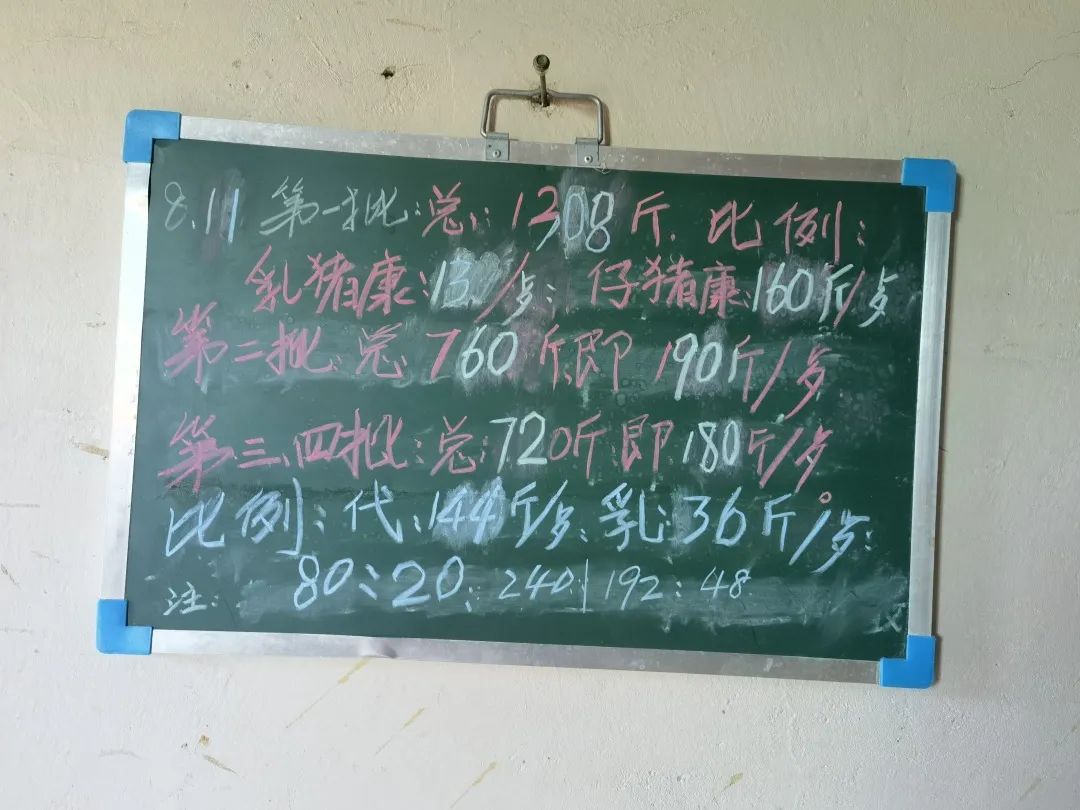 8.11 第一批:总:1308斤.比例:
乳猪康:13/歺:仔猪康:160斤/歺
第二批:总760斤.即190斤/歺
第三.四批:总:720斤.即180斤/歺。
比例:代:144斤/歺:乳:36斤/歺:
注: 80:20: 240|192:48